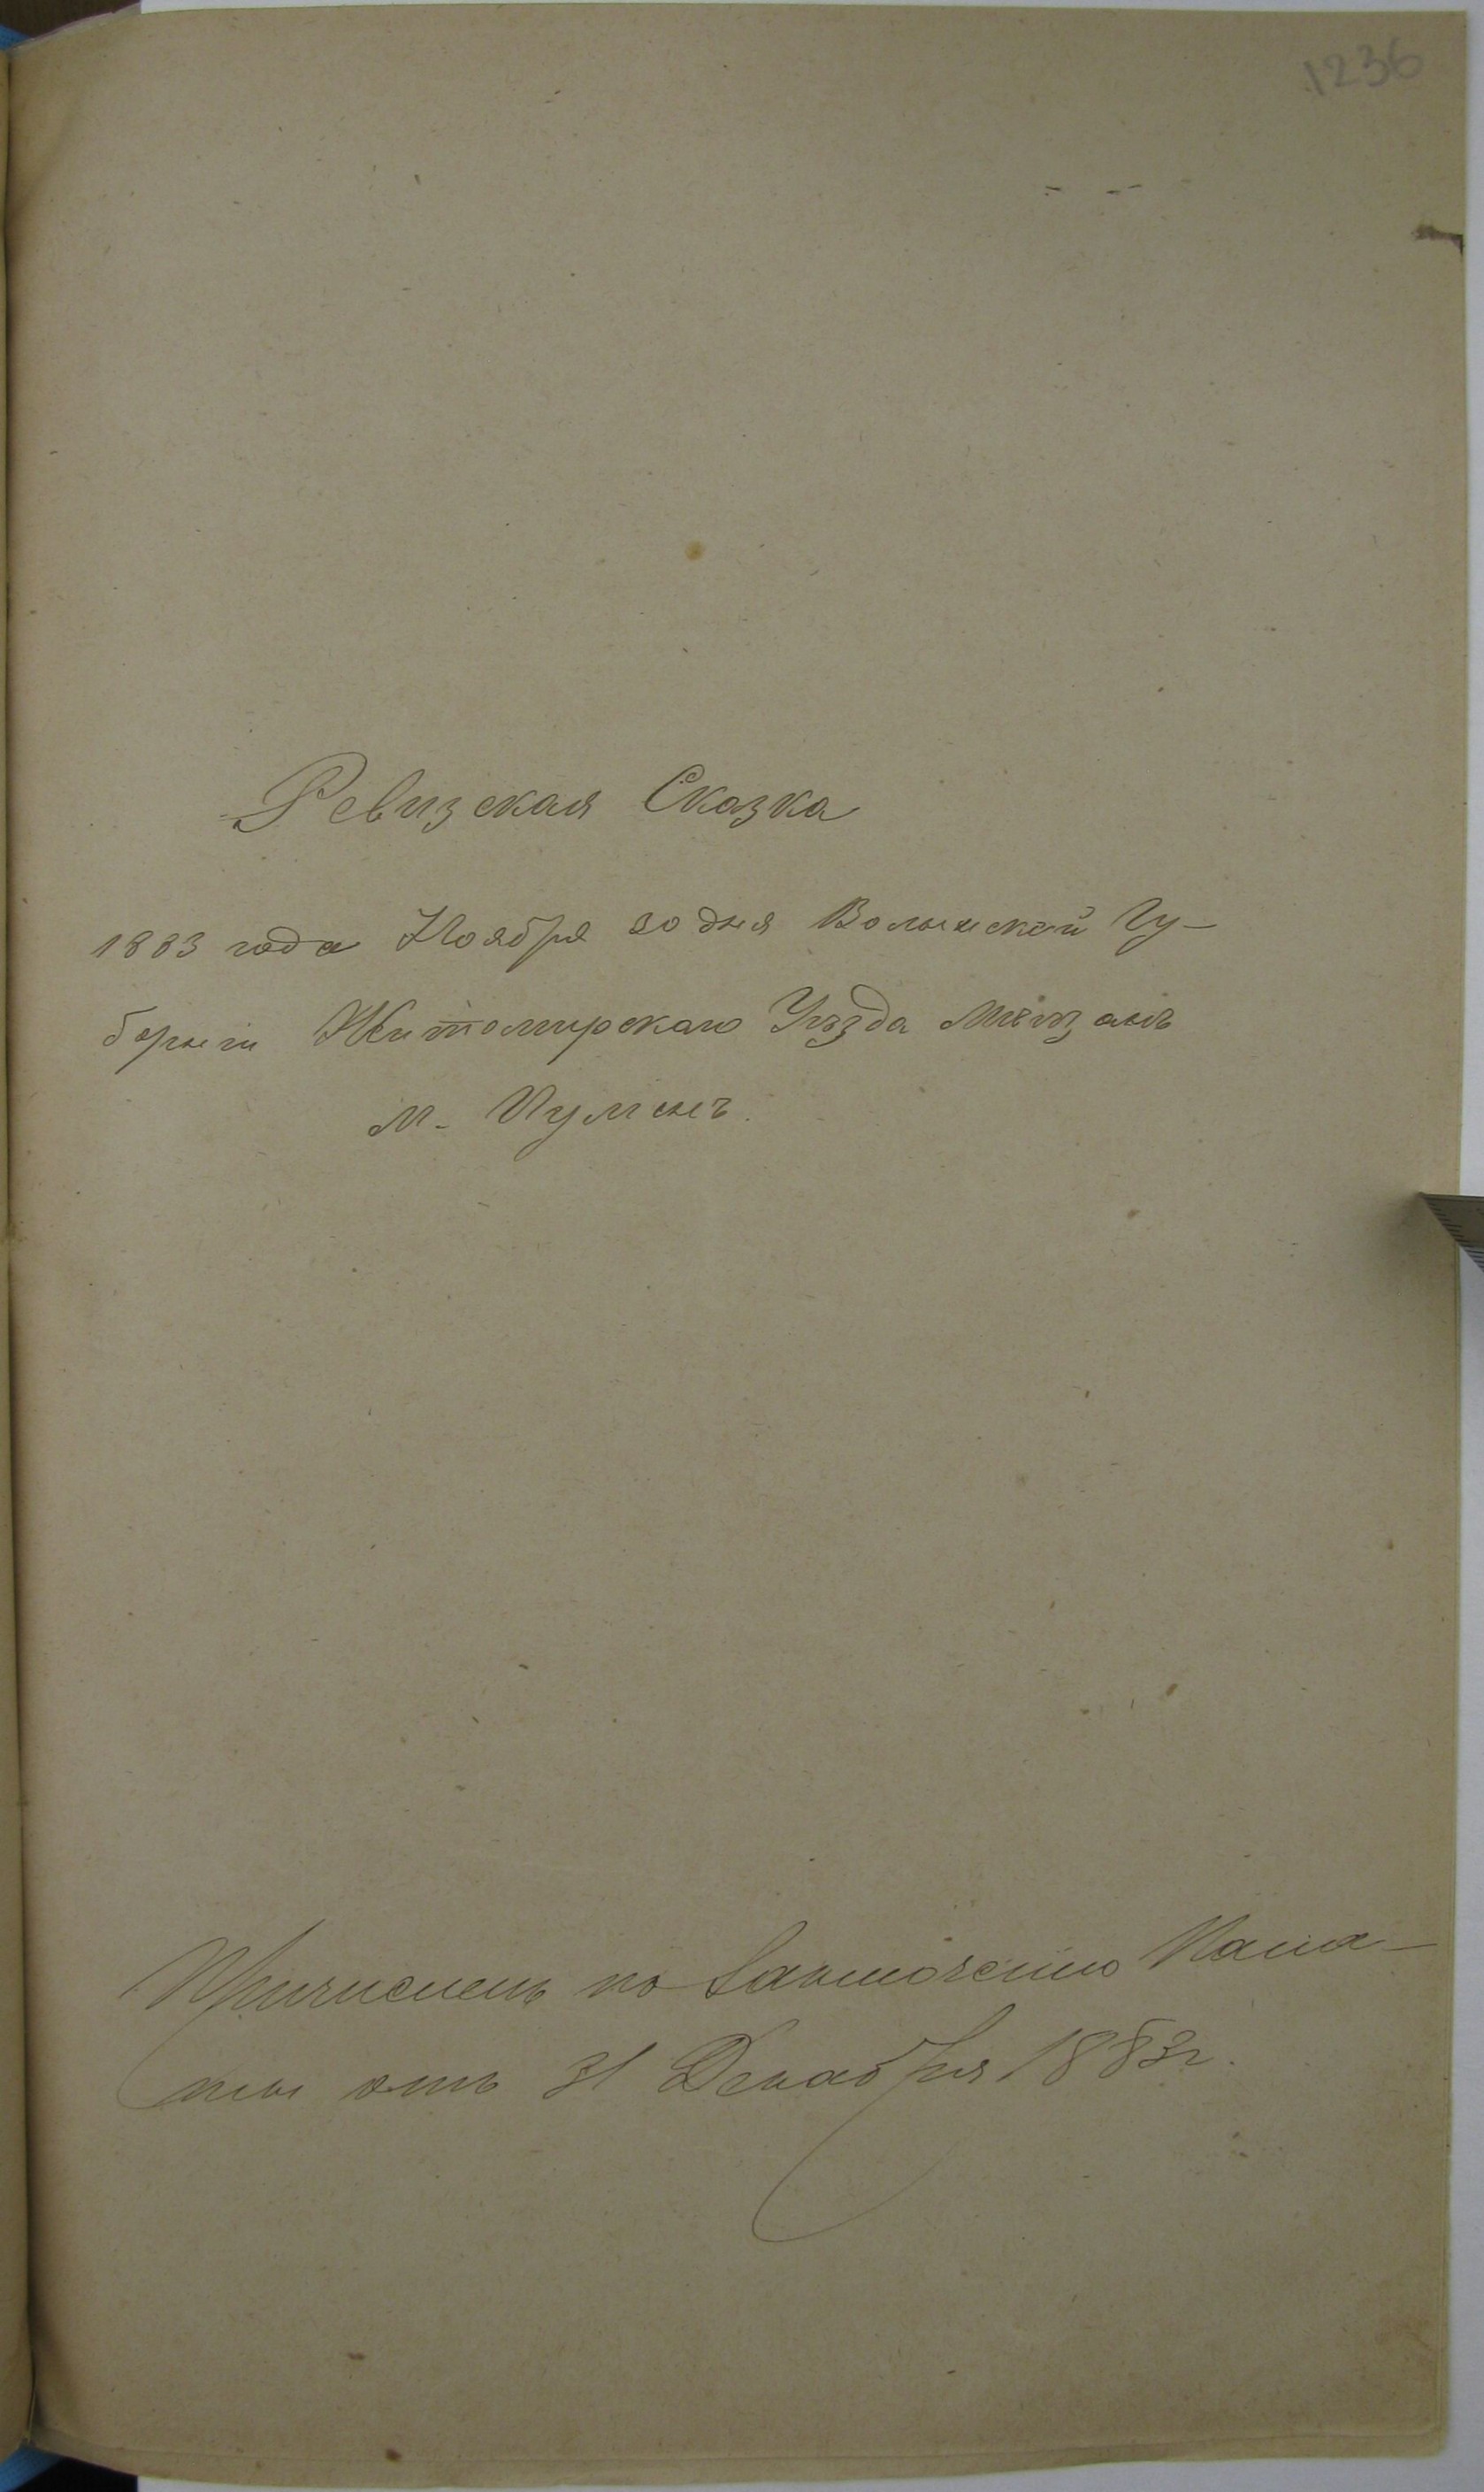 1236
Ревизская Сказка
1883 года Ноября 30 дня Волынской Гу-
берніи Житомирскаго Уѣзда Мѣщанъ
м. Пулинъ.
Причисленъ по заключенію Пала-
ты отъ 31 Декабря 1883 г.